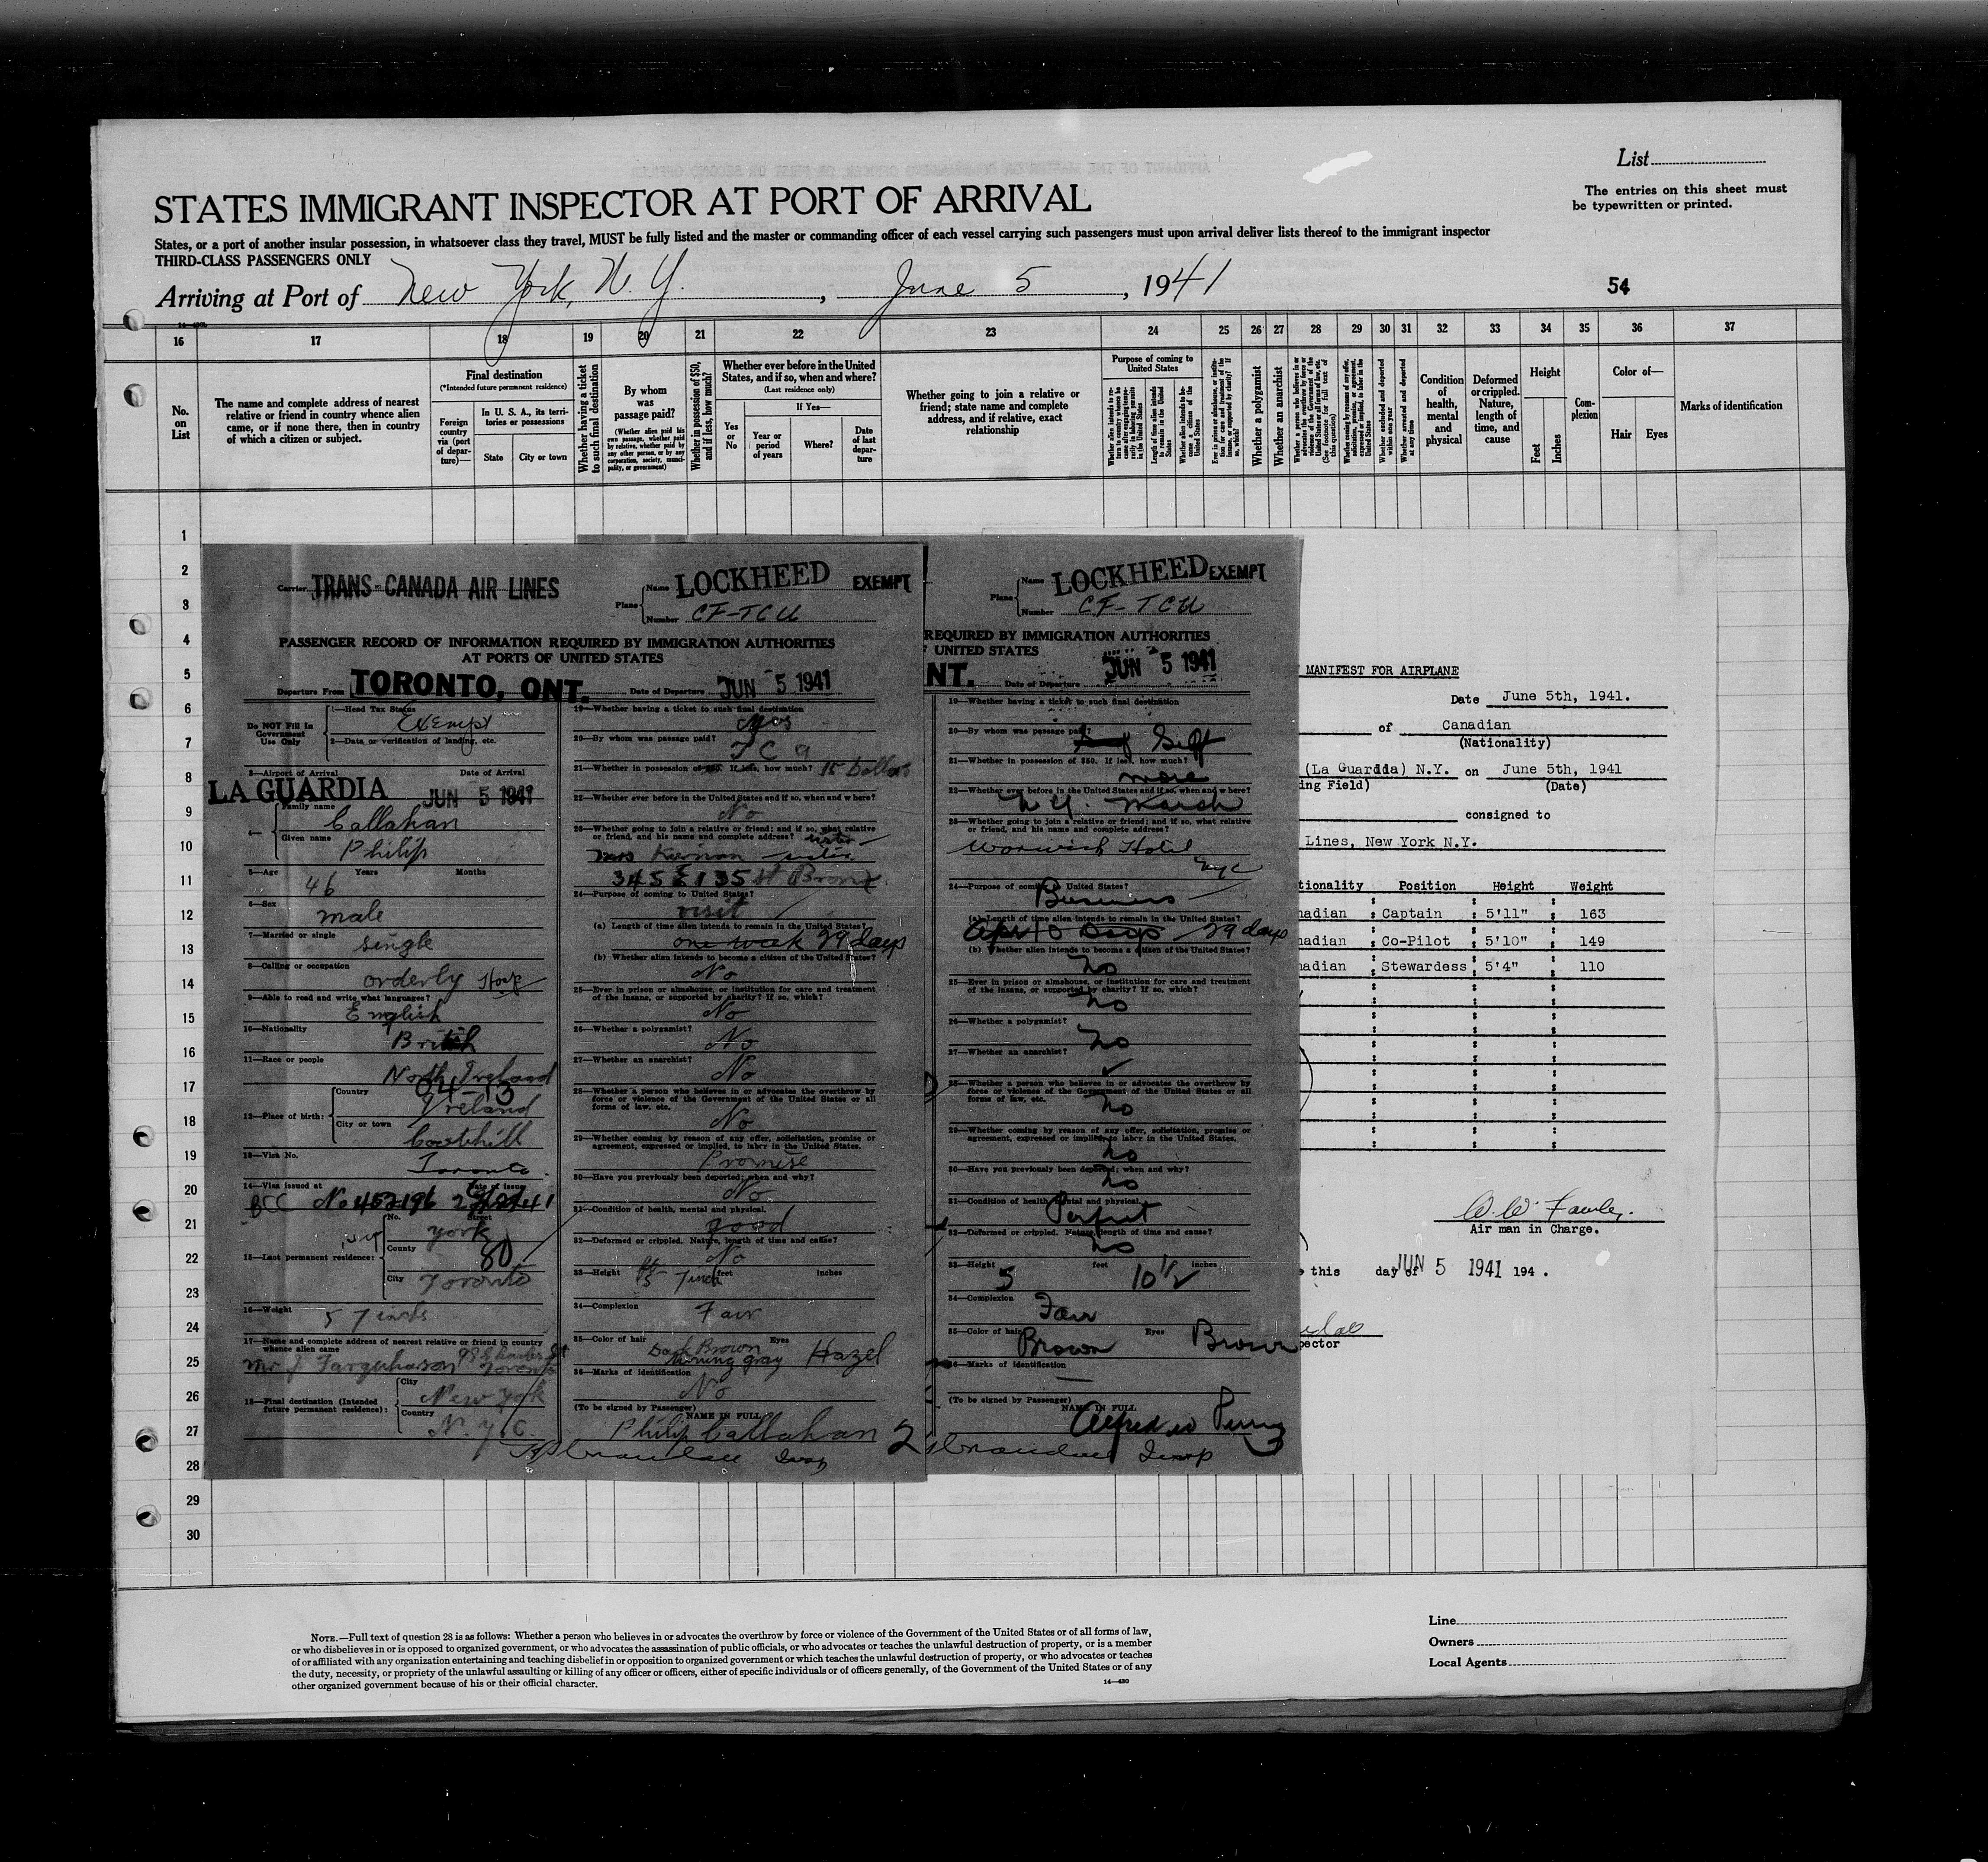 List
The entries on this sheet must
be typewritten or printed.
STATES IMMIGRANT INSPECTOR AT PORT OF ARRIVAL
States, or a port of another insular possession, in whatsoever class they travel, MUST be fully listed and the master or commanding officer of each vessel carrying such passengers must upon arrival deliver lists thereof to the immigrant inspector
THIRD-CLASS PASSENGERS ONLY
Arriving at Port of New York, N.Y., June 5, 1941
54
16 17 18 19 20 21 22 23 24 25 26 27 28 29 30 31 32 33 34 35 36 37
No. on List
The name and complete address of nearest
relative or friend in country whence alien
came, or if none there, then in country
of which a citizen or subject.
Final destination
(*Intended future permanent residence)
Foreign country via (port of departure)—
In U. S. A., its territories or possessions
State
City or town
Whether having a ticket to such final destination
By whom was passage paid?
(Whether alien paid his own passage, whether paid by relative, whether paid by any other person, or by any corporation, society, municipality, or government)
Whether in possession of $50, and if less, how much?
Whether ever before in the United States, and if so, when and where?
(Last residence only)
Yes or No
If Yes—
Year or period of years
Where?
Date of last departure
Whether going to join a relative or
friend; state name and complete
address, and if relative, exact
relationship
Purpose of coming to United States
Whether a polygamist
Whether an anarchist
Condition of health, mental and physical
Deformed or crippled. Nature, length of time, and cause
Height
Feet
Inches
Complexion
Color of—
Hair
Eyes
Marks of identification
1
2
3
4
5
6
7
8
9
10
11
12
13
14
15
16
17
18
19
20
21
22
23
24
25
26
27
28
29
30
Carrier TRANS-CANADA AIR LINES
Plane
Name LOCKHEED EXEMPT
Number CF-TCU
PASSENGER RECORD OF INFORMATION REQUIRED BY IMMIGRATION AUTHORITIES
AT PORTS OF UNITED STATES
Departure From TORONTO, ONT. Date of Departure JUN 5 1941
Do NOT Fill In
Government
Use Only
1—Head Tax Status
Exempt
2—Data or verification of landing, etc.
3—Airport of Arrival Date of Arrival
LA GUARDIA JUN 5 1941
4—
Family name
Callahan
Given name
Philip
5—Age 46 Years Months
6—Sex
male
7—Married or single
single
8—Calling or occupation
orderly Hosp
9—Able to read and write what languages?
English
10—Nationality
British
11—Race or people
North Ireland
04-13
12—Place of birth:
Country
Ireland
City or town
Cootehill
13—Visa No.
Toronto
14—Visa issued at Date of issue
BCC No 452196
15—Last permanent residence:
No. Street
County
York
80
City
Toronto
16—Weight
5 7 inches
17—Name and complete address of nearest relative or friend in country
whence alien came
Mr J Farquharson
Toronto
18—Final destination (Intended
future permanent residence):
City
New York
Country
N.Y.C.
19—Whether having a ticket to such final destination
yes
20—By whom was passage paid?
21—Whether in possession of $50. If less, how much? 15 Dollars
22—Whether ever before in the United States and if so, when and where?
No
23—Whether going to join a relative or friend; and if so, what relative
or friend, and his name and complete address? sister
Mrs Kiernan sister
345 E 135 St Bronx
24—Purpose of coming to United States?
visit
(a) Length of time alien intends to remain in the United States?
one week 29 days
(b) Whether alien intends to become a citizen of the United States?
No
25—Ever in prison or almshouse, or institution for care and treatment
of the insane, or supported by charity? If so, which?
No
26—Whether a polygamist?
No
27—Whether an anarchist?
No
28—Whether a person who believes in or advocates the overthrow by
force or violence of the Government of the United States or all
forms of law, etc.
No
29—Whether coming by reason of any offer, solicitation, promise or
agreement, expressed or implied, to labor in the United States.
Promise
30—Have you previously been deported; when and why?
No
31—Condition of health, mental and physical.
good
32—Deformed or crippled. Nature, length of time and cause?
No
33—Height 5 feet 7 inch inches
34—Complexion
Fair
35—Color of hair Eyes
Dark Brown
turning gray Hazel
36—Marks of identification
No
(To be signed by Passenger)
NAME IN FULL
Philip Callahan
2
Plane
Name LOCKHEED EXEMPT
Number CF-TCU
REQUIRED BY IMMIGRATION AUTHORITIES
F UNITED STATES
NT. Date of Departure JUN 5 1941
19—Whether having a ticket to such final destination
20—By whom was passage paid?
Self
21—Whether in possession of $50. If less, how much?
more
22—Whether ever before in the United States and if so, when and where?
N.Y. March
23—Whether going to join a relative or friend; and if so, what relative
or friend, and his name and complete address?
Warwick Hotel
NYC
24—Purpose of coming to United States?
Business
(a) Length of time alien intends to remain in the United States?
10 Days 29 days
(b) Whether alien intends to become a citizen of the United States?
No
25—Ever in prison or almshouse, or institution for care and treatment
of the insane, or supported by charity? If so, which?
No
26—Whether a polygamist?
No
27—Whether an anarchist?
28—Whether a person who believes in or advocates the overthrow by
force or violence of the Government of the United States or all
forms of law, etc.
No
29—Whether coming by reason of any offer, solicitation, promise or
agreement, expressed or implied, to labor in the United States.
No
30—Have you previously been deported; when and why?
No
31—Condition of health, mental and physical.
Perfect
32—Deformed or crippled. Nature, length of time and cause?
No
33—Height 5 feet 10 1/2 inches
34—Complexion
Fair
35—Color of hair Eyes
Brown Brown
36—Marks of identification
—
(To be signed by Passenger)
NAME IN FULL
3
MANIFEST FOR AIRPLANE
Date June 5th, 1941.
of Canadian
(Nationality)
(La Guardia) N.Y. on June 5th, 1941
ing Field) (Date)
consigned to
Lines, New York N.Y.
tionality Position Height Weight
nadian : Captain : 5'11" : 163
nadian : Co-Pilot : 5'10" : 149
nadian : Stewardess : 5'4" : 110
Air man in Charge.
this day of JUN 5 1941 194 .
pector
NOTE.—Full text of question 28 is as follows: Whether a person who believes in or advocates the overthrow by force or violence of the Government of the United States or of all forms of law,
or who disbelieves in or is opposed to organized government, or who advocates the assassination of public officials, or who advocates or teaches the unlawful destruction of property, or is a member
of or affiliated with any organization entertaining and teaching disbelief in or opposition to organized government or which teaches the unlawful destruction of property, or who advocates or teaches
the duty, necessity, or propriety of the unlawful assaulting or killing of any officer or officers, either of specific individuals or of officers generally, of the Government of the United States or of any
other organized government because of his or their official character.
14—430
Line
Owners
Local Agents